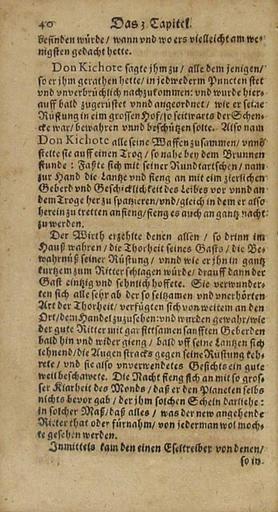 40 Das 3 Capitel.
befinden würde / wann vnd wo ers vielleicht am we-
nigsten gedacht hette.
Don Kichote sagte jhm zu / alle dem jenigen /
so er jhm gerathen hette / in jedwederm Puncten stet
vnd vnverbrüchlich nachzukommen: vnd wurde hier-
auff bald zugerüstet vnnd angeordnet / wie er seine
Rüstung in eim grossen Hof / so seitwarts der Schen-
cke war / bewahren vnnd beschützen solte. Also nam
Don Kichote alle seine Waffen zusammen / vnnd
stellte sie auff einen Trog / so nahe bey dem Brunnen
stunde: Faste sich mit seiner Rundtartschen / nam
zur Hand die Lantze vnd fieng an mit eim zierlichen
Geberd vnd Geschicklichkeit des Leibes vor vnnd an
dem Troge her zu spatzieren / vnd / gleich in dem er also
herein zu tretten anfieng / fieng es auch an gantz nacht
zu werden.
Der Wirth erzehlte denen allen / so drinn im
Hauß wahren / die Thorheit seines Gasts / die Be-
wahrnüß seiner Rüstung / vnnd wie er jhn in gantz
kurtzem zum Ritter schlagen würde / drauff dann der
Gast eintzig vnd sehnlich hoffete. Sie verwunder-
ten sich alle sehr ab der so seltzamen vnd vnerhörten
Art der Thorheit / verfügten sich von weitem an den
Ort / dem Handel zuzusehen vnd wurden gewahr / wie
der gute Ritter mit gar sittsamen sanfften Geberden
bald hin vnd wider gieng / bald vff seine Lantzen sich
lehnend / die Augen stracks gegen seine Rüstung keh-
rete / vnd sie also vnverwendetes Gesichts ein gute
weil beschawete. Die Nacht fieng sich an mit so gros-
ser Klarheit des Monds / daß er den Planeten selbs
nichts bevor gab / der jhm solchen Schein darliehe:
in solcher Maß / daß alles / was der new angehende
Ritter that oder fürnahm / von jederman wol moch-
te gesehen werden.
Inmittels kam den einen Eseltreiber von denen /
so in-